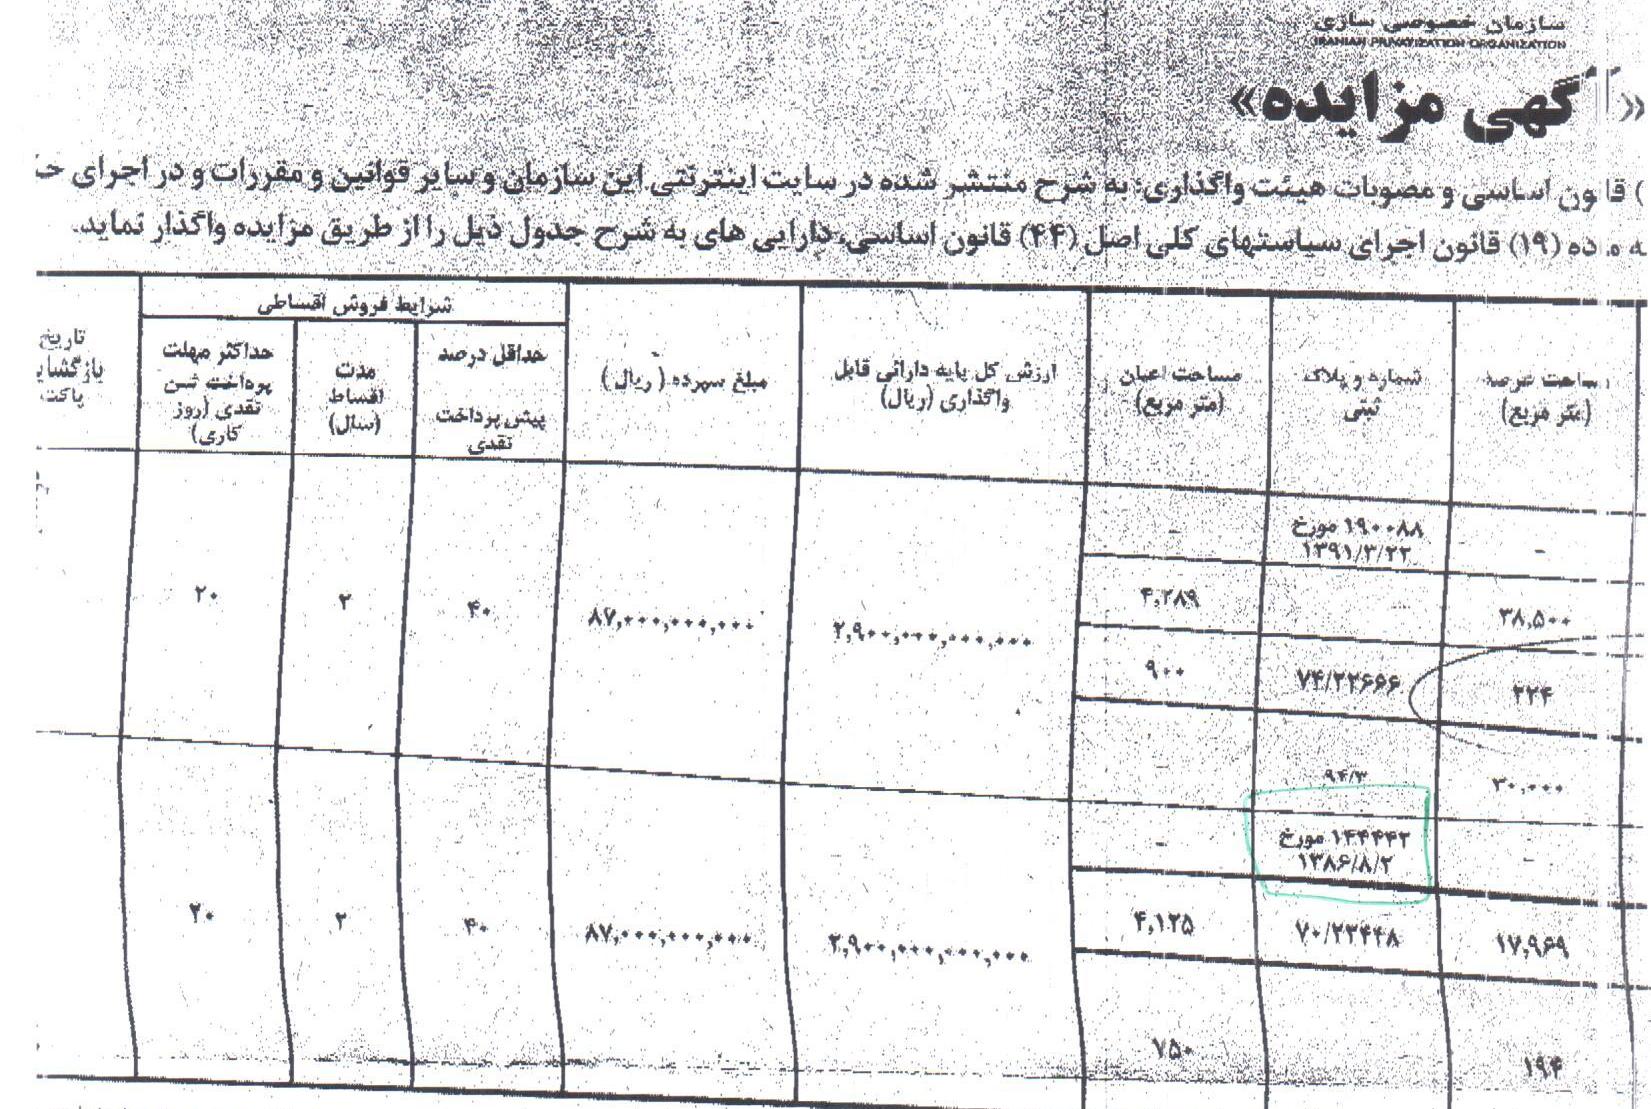 سازمان خصوصی سازی
IRANIAN PRIVATIZATION ORGANIZATION
«آگهی مزایده»
) قانون اساسی و مصوبات هیئت واگذاری، به شرح منتشر شده در سایت اینترنتی این سازمان و سایر قوانین و مقررات و در اجرای
ماده (۱۹) قانون اجرای سیاستهای کلی اصل (۴۴) قانون اساسی، دارایی های به شرح جدول ذیل را از طریق مزایده واگذار نماید.
مساحت عرصه
(متر مربع)
شماره و پلاک
ثبتی
مساحت اعیان
(متر مربع)
ارزش کل پایه دارائی قابل
واگذاری (ریال)
مبلغ سپرده (ریال)
شرایط فروش اقساطی
حداقل درصد
پیش پرداخت
نقدی
مدت
اقساط
(سال)
حداکثر مهلت
پرداخت ثمن
نقدی (روز
کاری)
تاریخ
بازگشایی
پاکت
- ۱۹۰۰۸۸ مورخ -
۱۳۹۱/۳/۲۲
۳۸,۵۰۰ ۴,۲۸۹ ۲,۹۰۰,۰۰۰,۰۰۰,۰۰۰ ۸۷,۰۰۰,۰۰۰,۰۰۰ ۴۰ ۲ ۲۰
۲۲۴ ۷۴/۲۲۶۶۶ ۹۰۰
۳۰,۰۰۰ ۹۴/۳
- ۱۴۴۴۴۲ مورخ -
۱۳۸۶/۸/۲
۱۷,۹۶۹ ۷۰/۲۳۴۴۸ ۴,۱۲۵ ۲,۹۰۰,۰۰۰,۰۰۰,۰۰۰ ۸۷,۰۰۰,۰۰۰,۰۰۰ ۴۰ ۲ ۲۰
۱۹۴ ۷۵۰